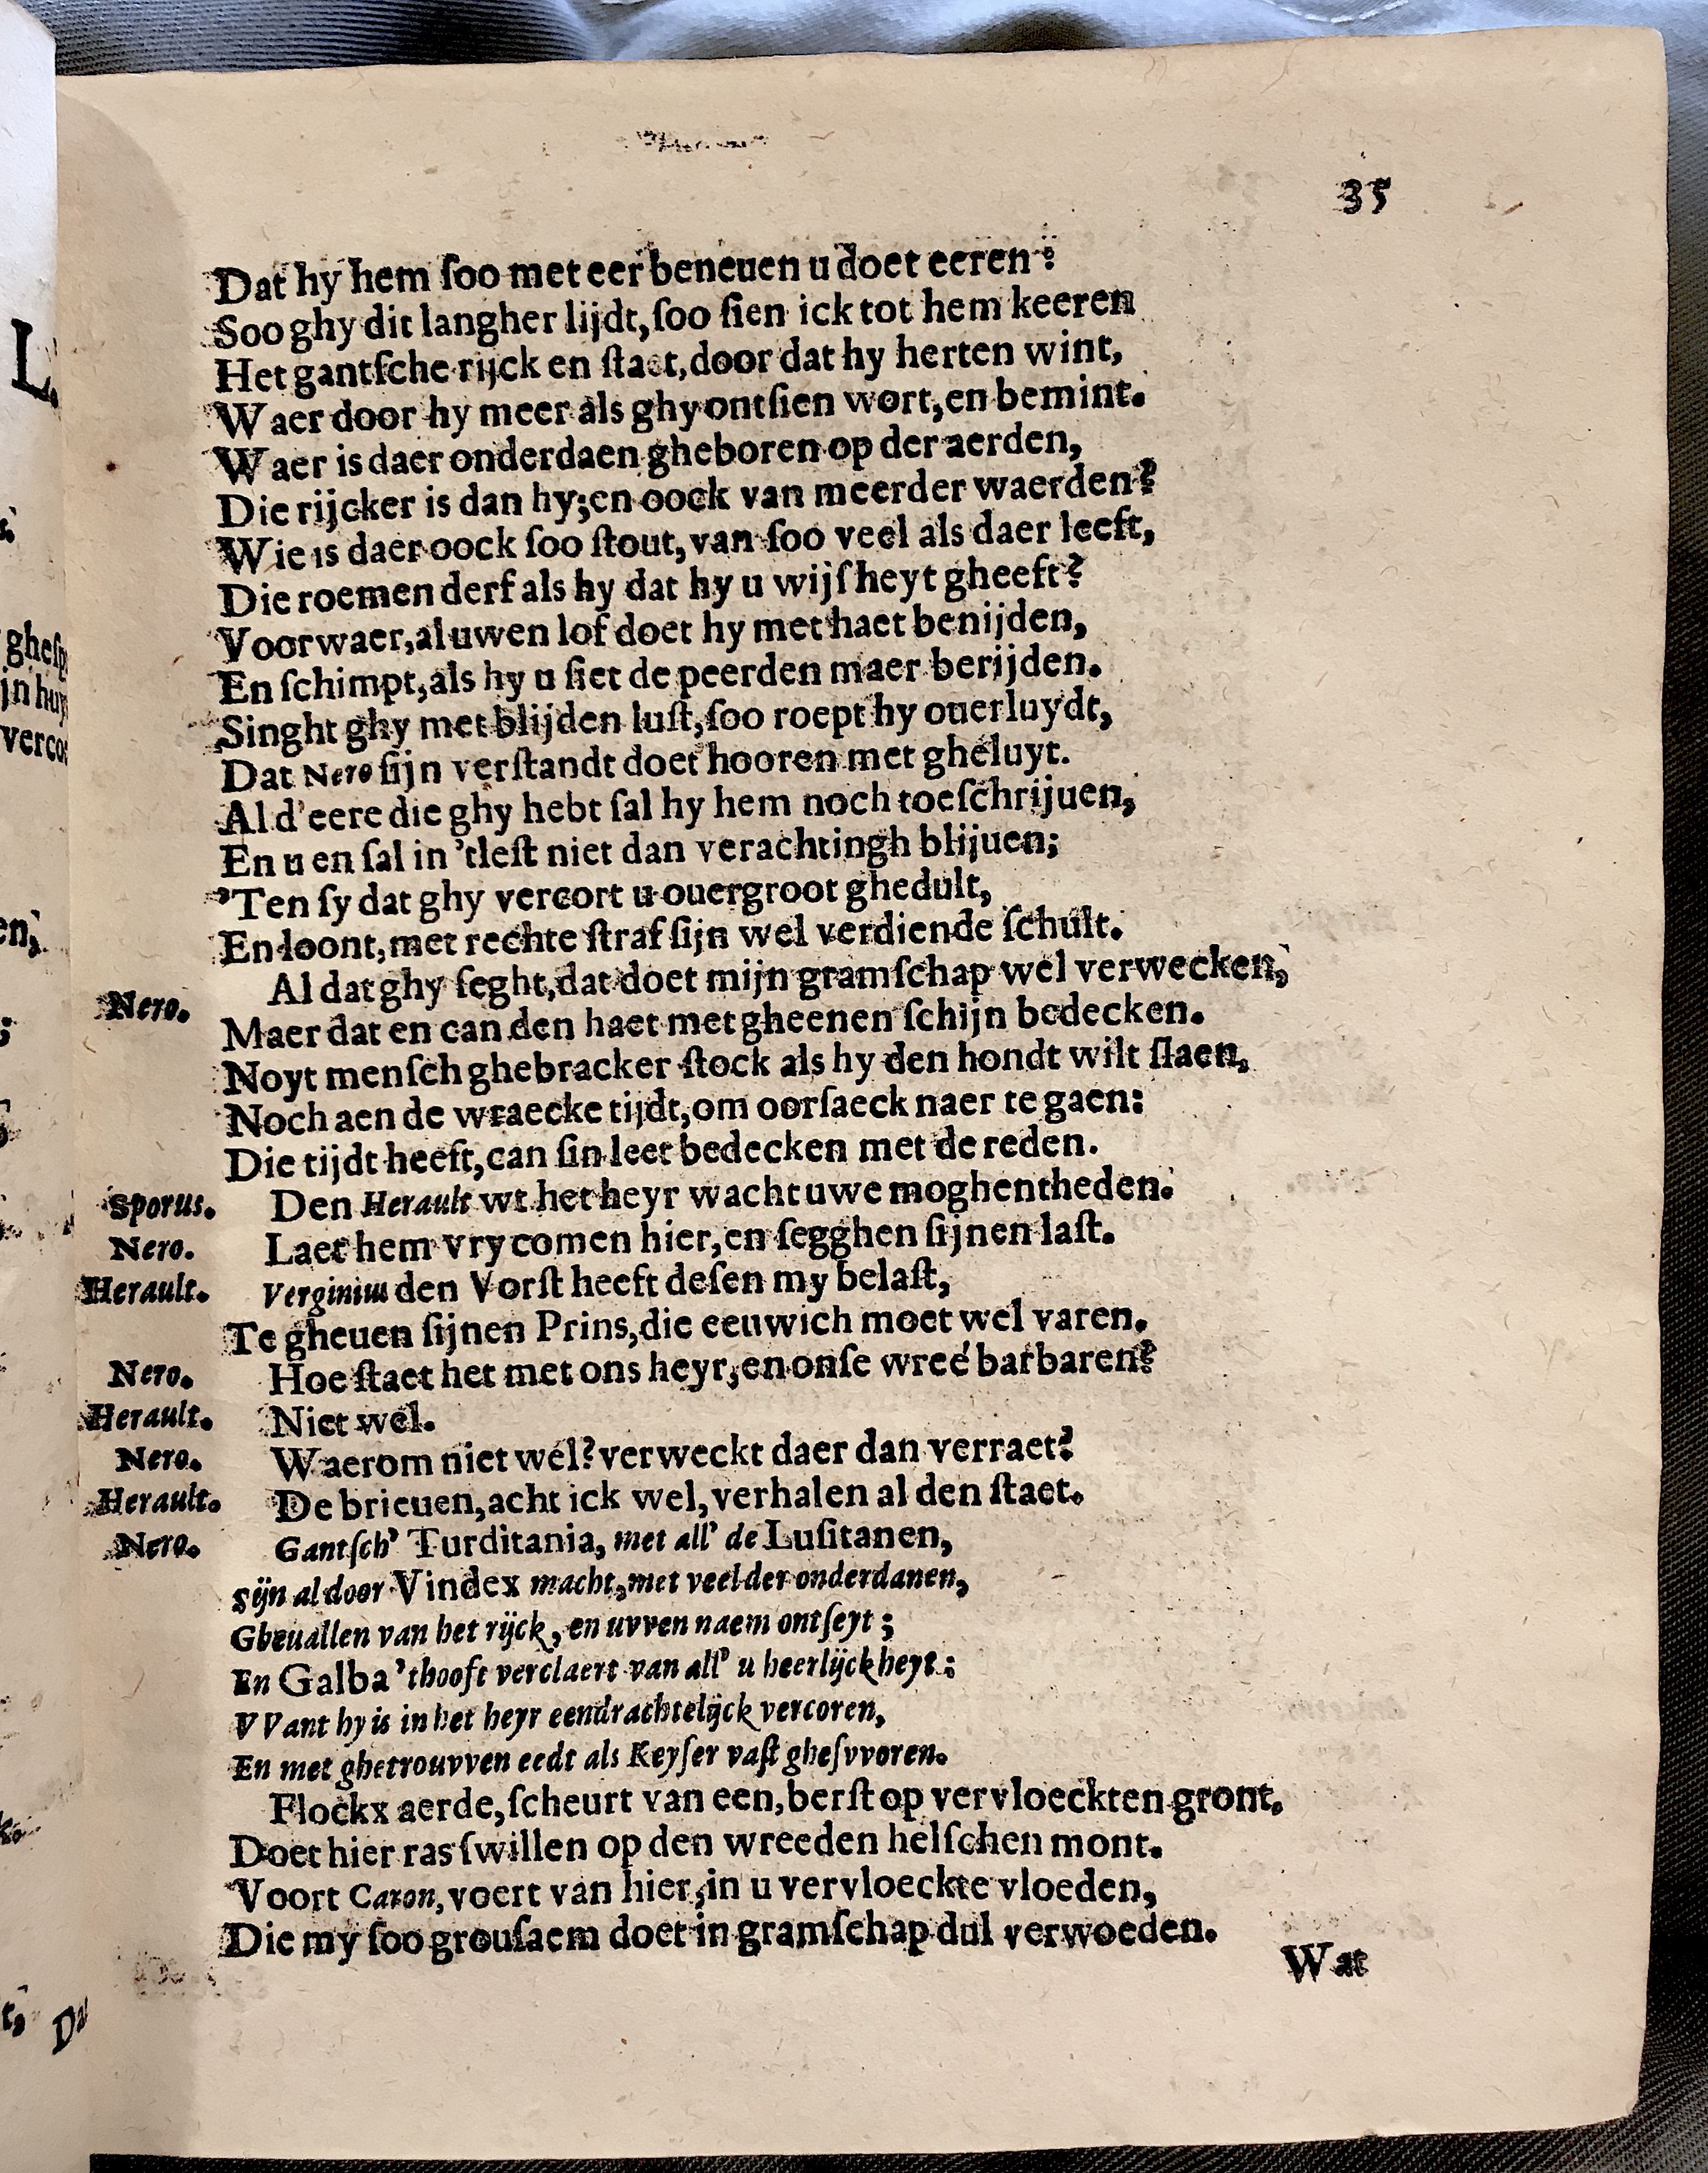 35
Dat hy hem ſoo met eer beneuen u doet eeren?
Soo ghy dit langher lijdt, ſoo ſien ick tot hem keeren
Het gantſche rijck en ſtaet, door dat hy herten wint,
Waer door hy meer als ghy ontſien wort, en bemint.
Waer is daer onderdaen gheboren op der aerden,
Die rijcker is dan hy; en oock van meerder waerden?
Wie is daer oock ſoo ſtout, van ſoo veel als daer leeft,
Die roemen derf als hy dat hy u wijſheyt gheeft?
Voorwaer, al uwen lof doet hy met haet benijden,
En ſchimpt, als hy u ſiet de peerden maer berijden.
Singht ghy met blijden luſt, ſoo roept hy ouerluydt,
Dat Nero ſijn verſtandt doet hooren met gheluyt.
Al d'eere die ghy hebt ſal hy hem noch toeſchrijuen,
En u en ſal in 'tleſt niet dan verachtingh blijuen;
'Ten ſy dat ghy vercort u ouergroot ghedult,
En loont, met rechte ſtraf ſijn wel verdiende ſchult.
Nero. Al dat ghy ſeght, dat doet mijn gramſchap wel verwecken,
Maer dat en can den haet met gheenen ſchijn bedecken.
Noyt menſch ghebracker ſtock als hy den hondt wilt ſlaen,
Noch aen de wraecke tijdt, om oorſaeck naer te gaen:
Die tijdt heeft, can ſin leet bedecken met de reden.
Sporus. Den Herault wt het heyr wacht uwe moghentheden.
Nero. Laet hem vry comen hier, en ſegghen ſijnen laſt.
Herault. Verginius den Vorſt heeft deſen my belaſt,
Te gheuen ſijnen Prins, die eeuwich moet wel varen.
Nero. Hoe ſtaet het met ons heyr, en onſe wreé barbaren?
Herault. Niet wel.
Nero. Waerom niet wel? verweckt daer dan verraet?
Herault. De brieuen, acht ick wel, verhalen al den ſtaet.
Nero. Gantſch' Turditania, met all' de Luſitanen,
Sijn al door Vindex macht, met veelder onderdanen,
Gheuallen van het rijck, en uvven naem ontſeyt;
En Galba 'thooft verclaert van all' u heerlijckheyt:
VVant hy is in het heyr eendrachtelijck vercoren,
En met ghetrouvven eedt als Keyſer vaſt gheſvvoren.
Flockx aerde, ſcheurt van een, berſt op vervloeckten gront.
Doet hier ras ſwillen op den wreeden helſchen mont.
Voort Caron, voert van hier, in u vervloeckte vloeden,
Die my ſoo grouſaem doet in gramſchap dul verwoeden.
Wat